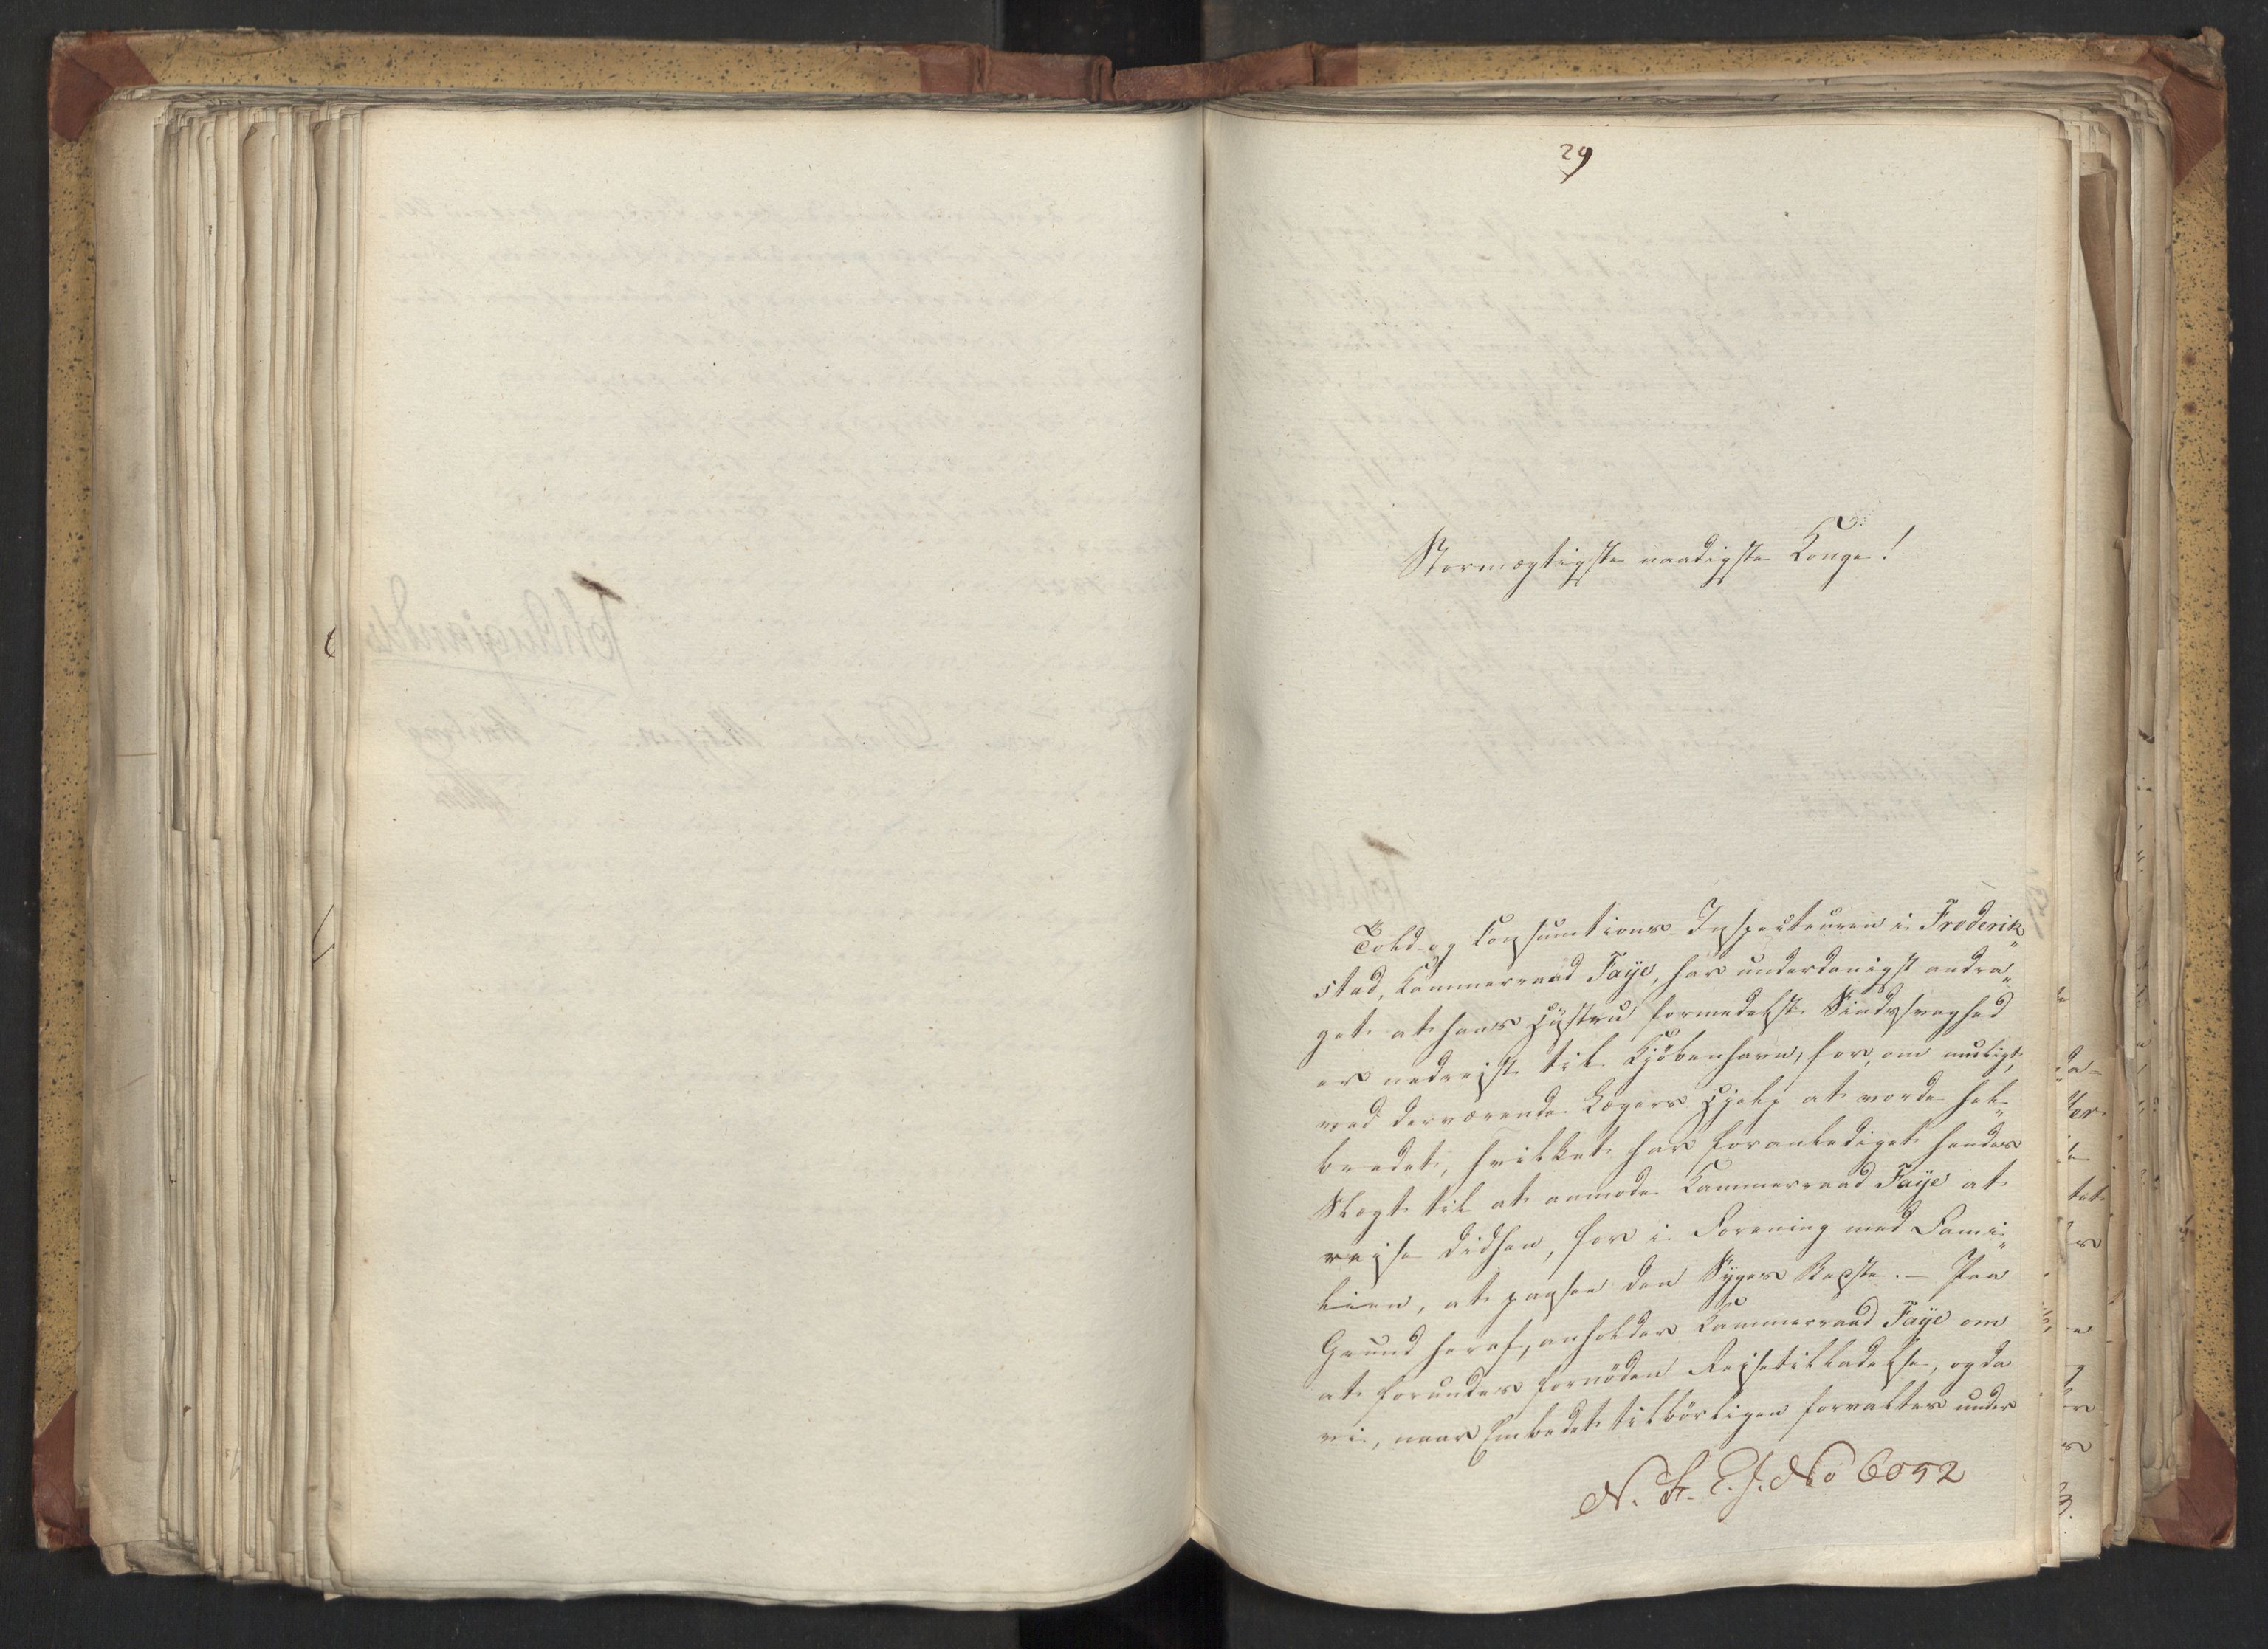 29
Stormægtigste naadigste Konge!
Told- og Consumtions-Inspecteuren i Frederik„
stad, Kammerraad Faÿe, har underdanigst andra„
get at hans Hüstru formedelst Sindssvaghed
er nedreist til Kjöbenhavn, for, om muligt,
ved derværende Lægers Hjelp at vorde hel„
bredet, hvilket har foranlediget hendes
Slægt til at anmode Kammerraad Faÿe at
reise didhen, for i Forening med Fami„
lien, at paasee den Syges Bedste. – Paa
Grund heraf, anholder Kammerraad Faÿe om
at forundes fornöden Reisetilladelse, og da
vi, naar Embedet tilbörligen forvaltes under
N. F. C. J. No 6052